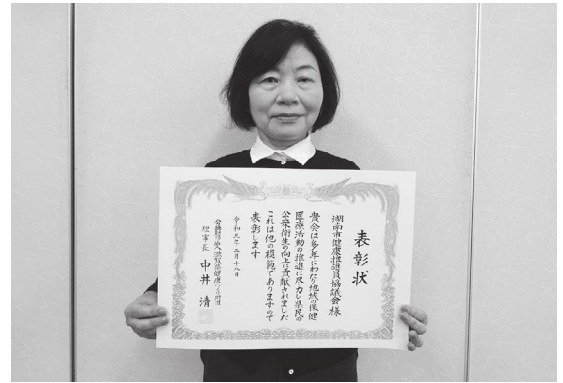 表彰状
湖南市健康推進員協議会様
貴会は多年にわたり地域の保健
医療活動の推進に尽力し県民の
公衆衛生の向上に貢献されました
これは他の模範でありますので
表彰します
令和三年二月十八日
公益財団法人滋賀県健康づくり財団
理事長 中井 清